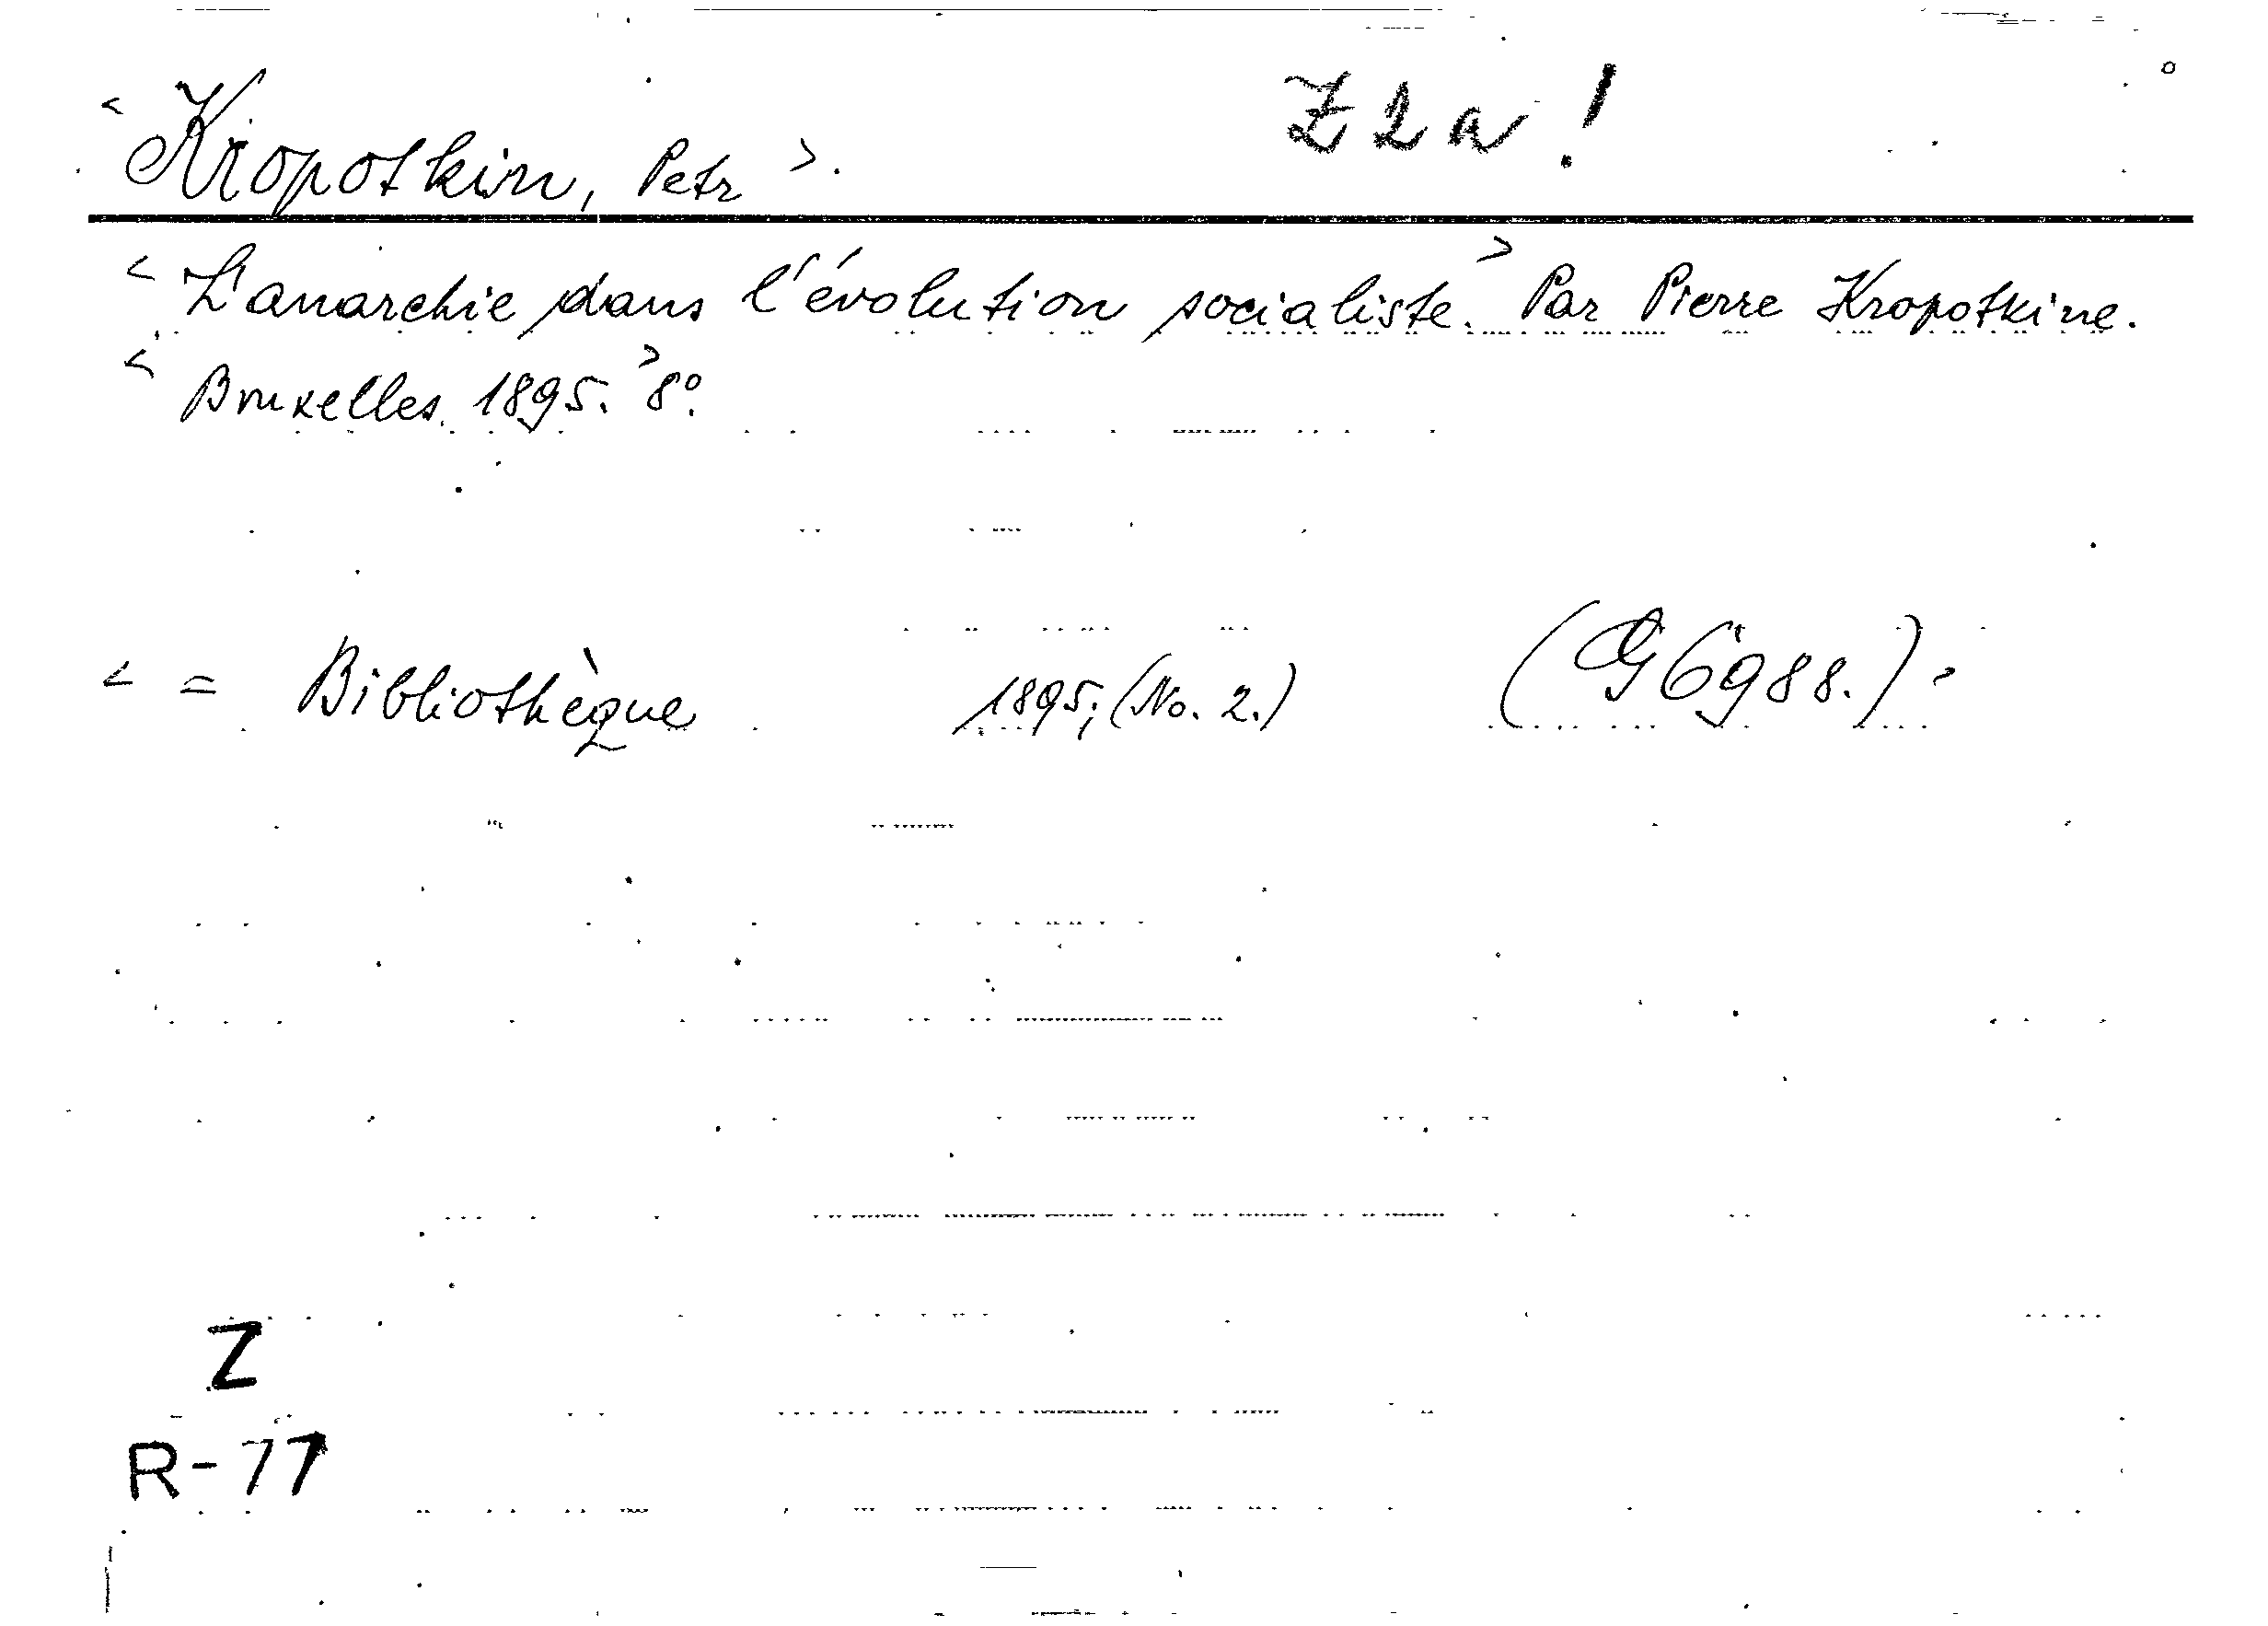 < Kropotkin, Petr >. Z 2 a !
< L'anarchie dans l'évolution socialiste. > Par Pierre Kropotkine.
< Bruxelles. 1895. > 8º.
< = Bibliothèque 1895, (No. 2.) (G6988.) >
Z
R-77